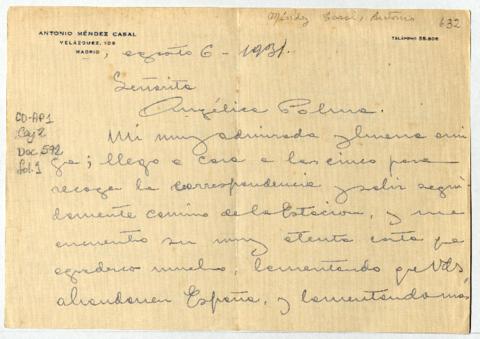 Méndez Casal, Antonio
632
ANTONIO MÉNDEZ CASAL
VELÁZQUEZ, 108
MADRID
TELÉFONO 58.808
agosto 6 - 1931.
Señorita
Angélica Palma.
CO-AP1
Caj 2
Doc. 592
fol. 1
Mi muy admirada y buena ami
ga; llego a casa a las cinco para
recoger la correspondencia y salir segui
damente camino de la Estacion, y me
encuentro su muy atenta carta que
agradezco mucho, lamentando que Vds
abandonen España, y lamentando mas